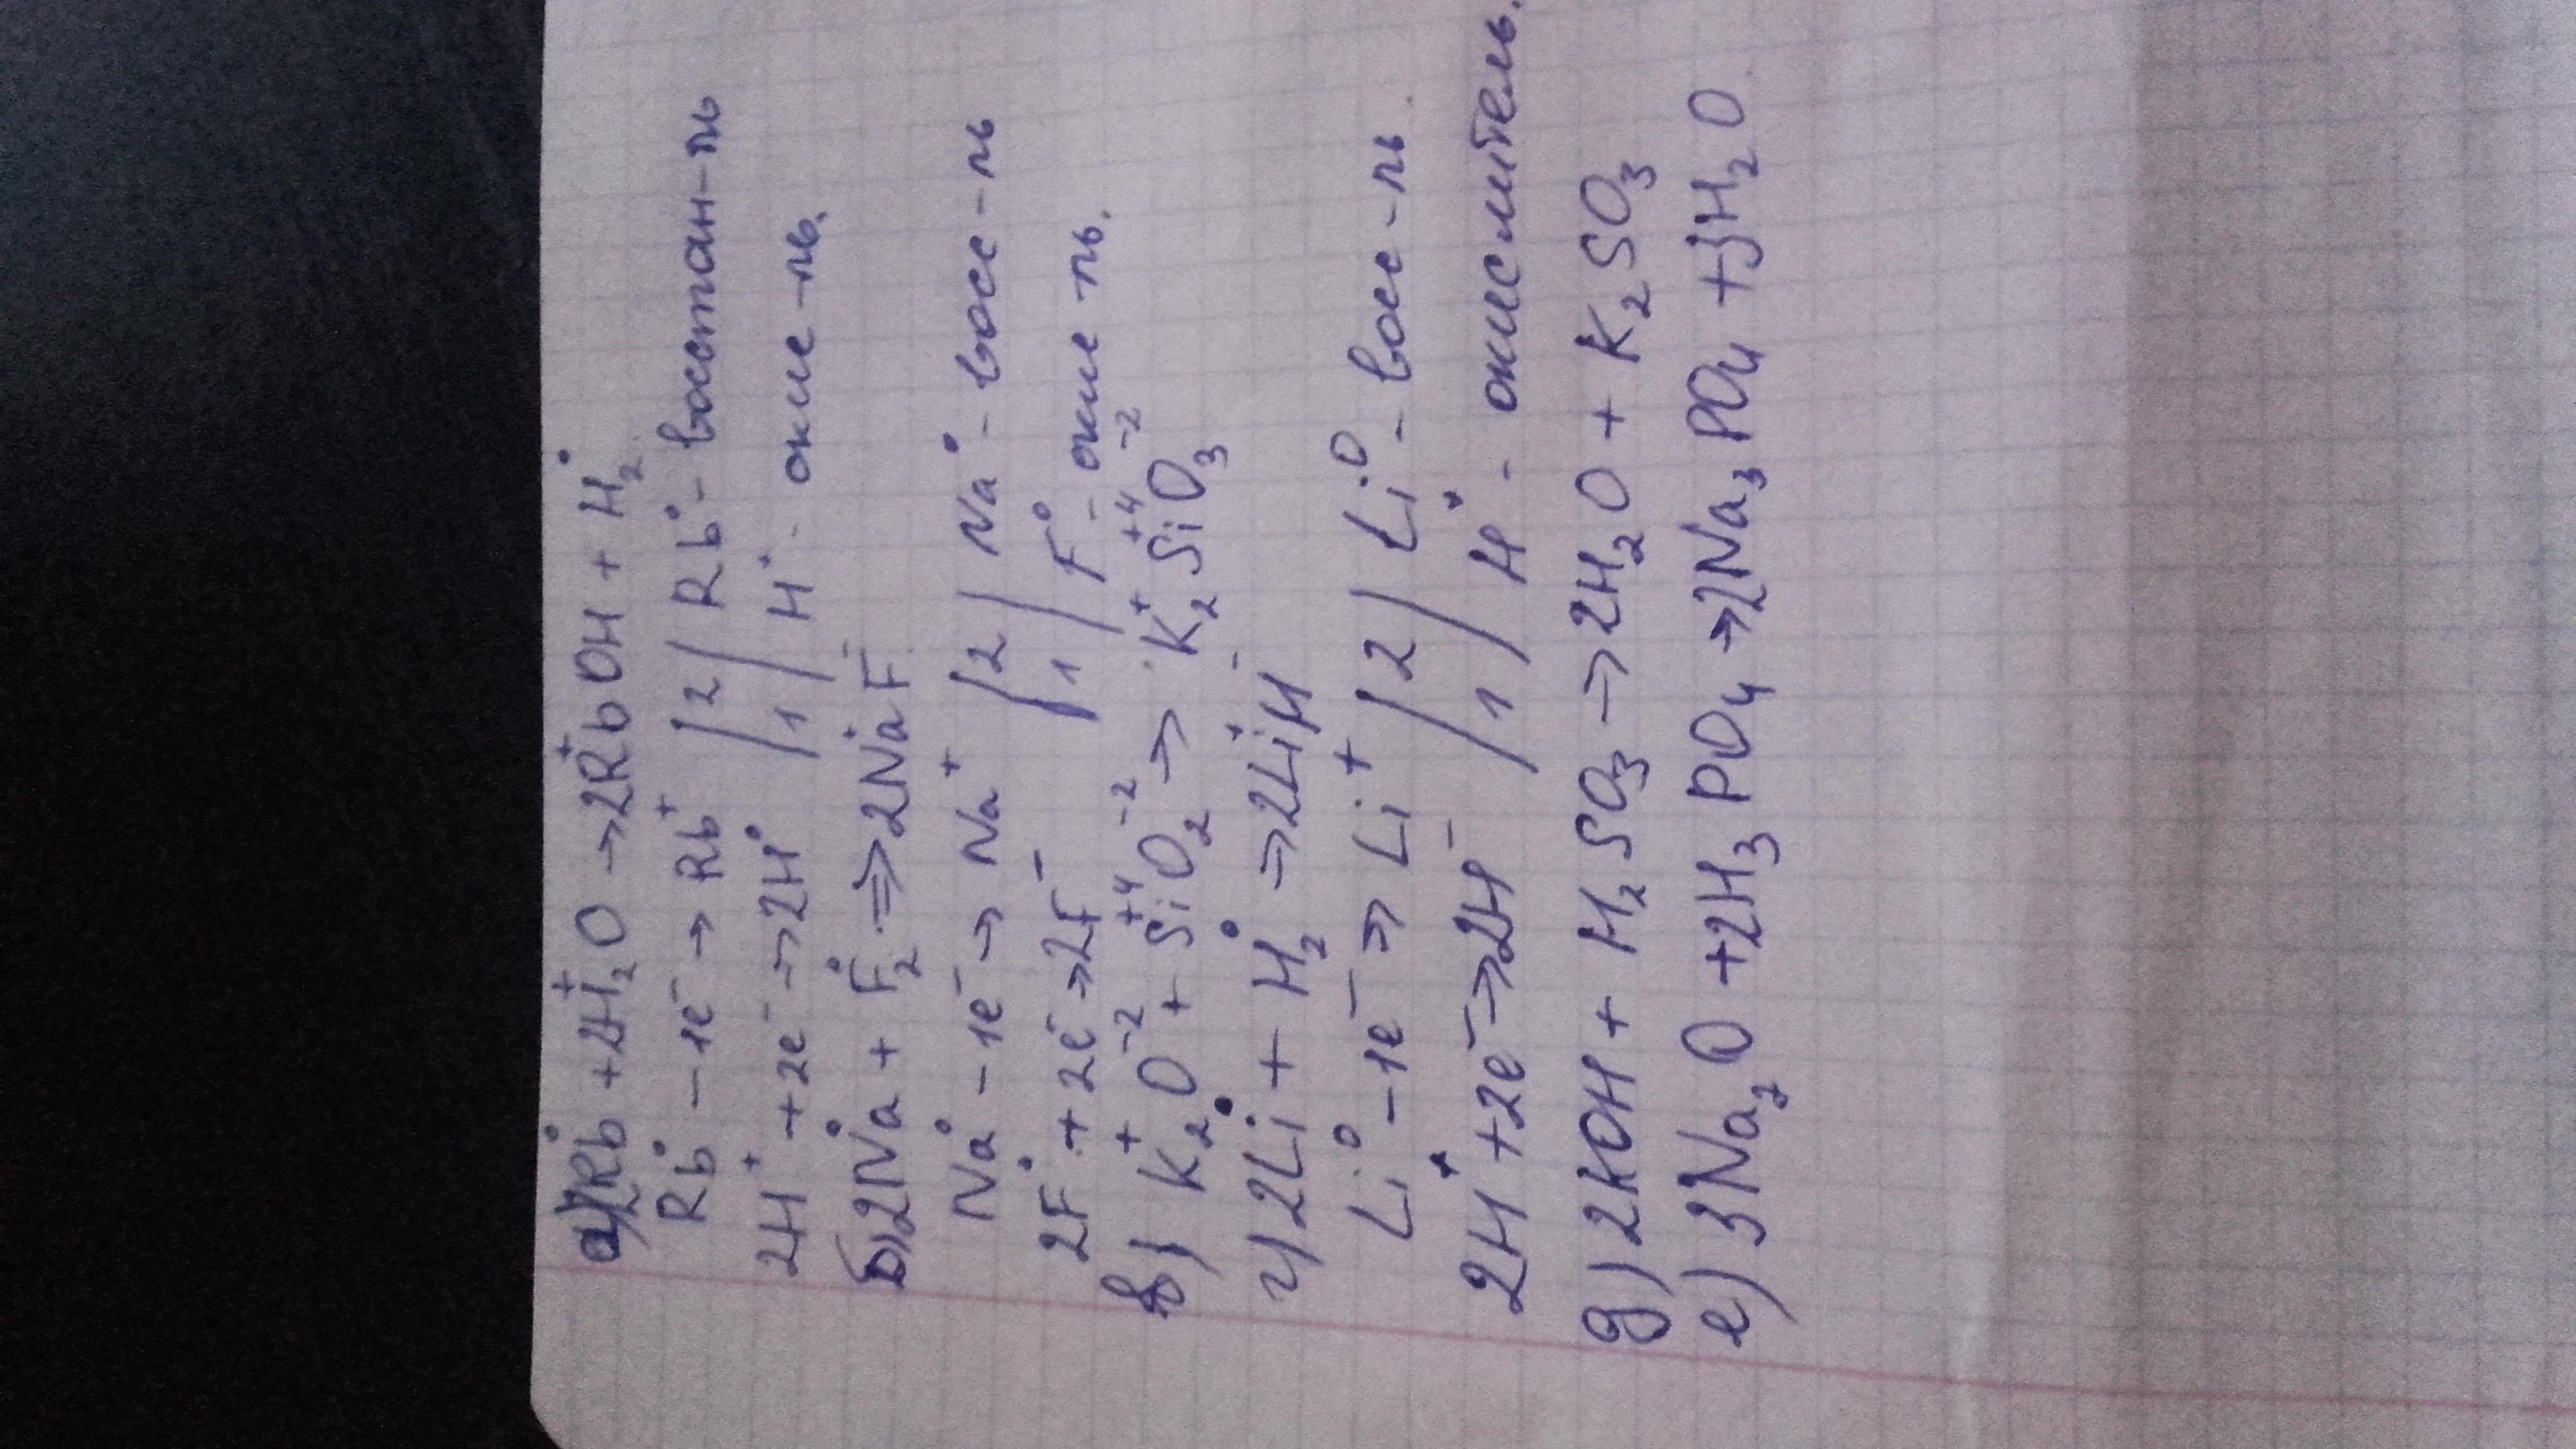 а) 2Rb⁰ + 2H⁺₂O → 2Rb⁺OH + H₂⁰
Rb⁰ – 1e⁻ → Rb⁺ | 2 | Rb⁰ – восстан–ль
2H⁺ + 2e⁻ → 2H⁰ | 1 | H⁺ – окис–ль.
Б) 2Na⁰ + F₂⁰ ⇒ 2Na⁺F⁻
Na⁰ – 1e⁻ → Na⁺ | 2 | Na⁰ – восс–ль
2F⁰ + 2e⁻ → 2F⁻ | 1 | F⁰ – окис–ль.
в) K₂⁺O⁻² + Si⁺⁴O₂⁻² → K₂⁺Si⁺⁴O₃⁻²
г) 2Li⁰ + H₂⁰ → 2Li⁺H⁻
Li⁰ – 1e⁻ → Li⁺ | 2 | Li⁰ – восс–ль.
2H⁰ + 2e⁻ → 2H⁻ | 1 | H⁰ – окислитель.
д) 2KOH + H₂SO₃ → 2H₂O + K₂SO₃
е) 3Na₂O + 2H₃PO₄ → 2Na₃PO₄ + 3H₂O.